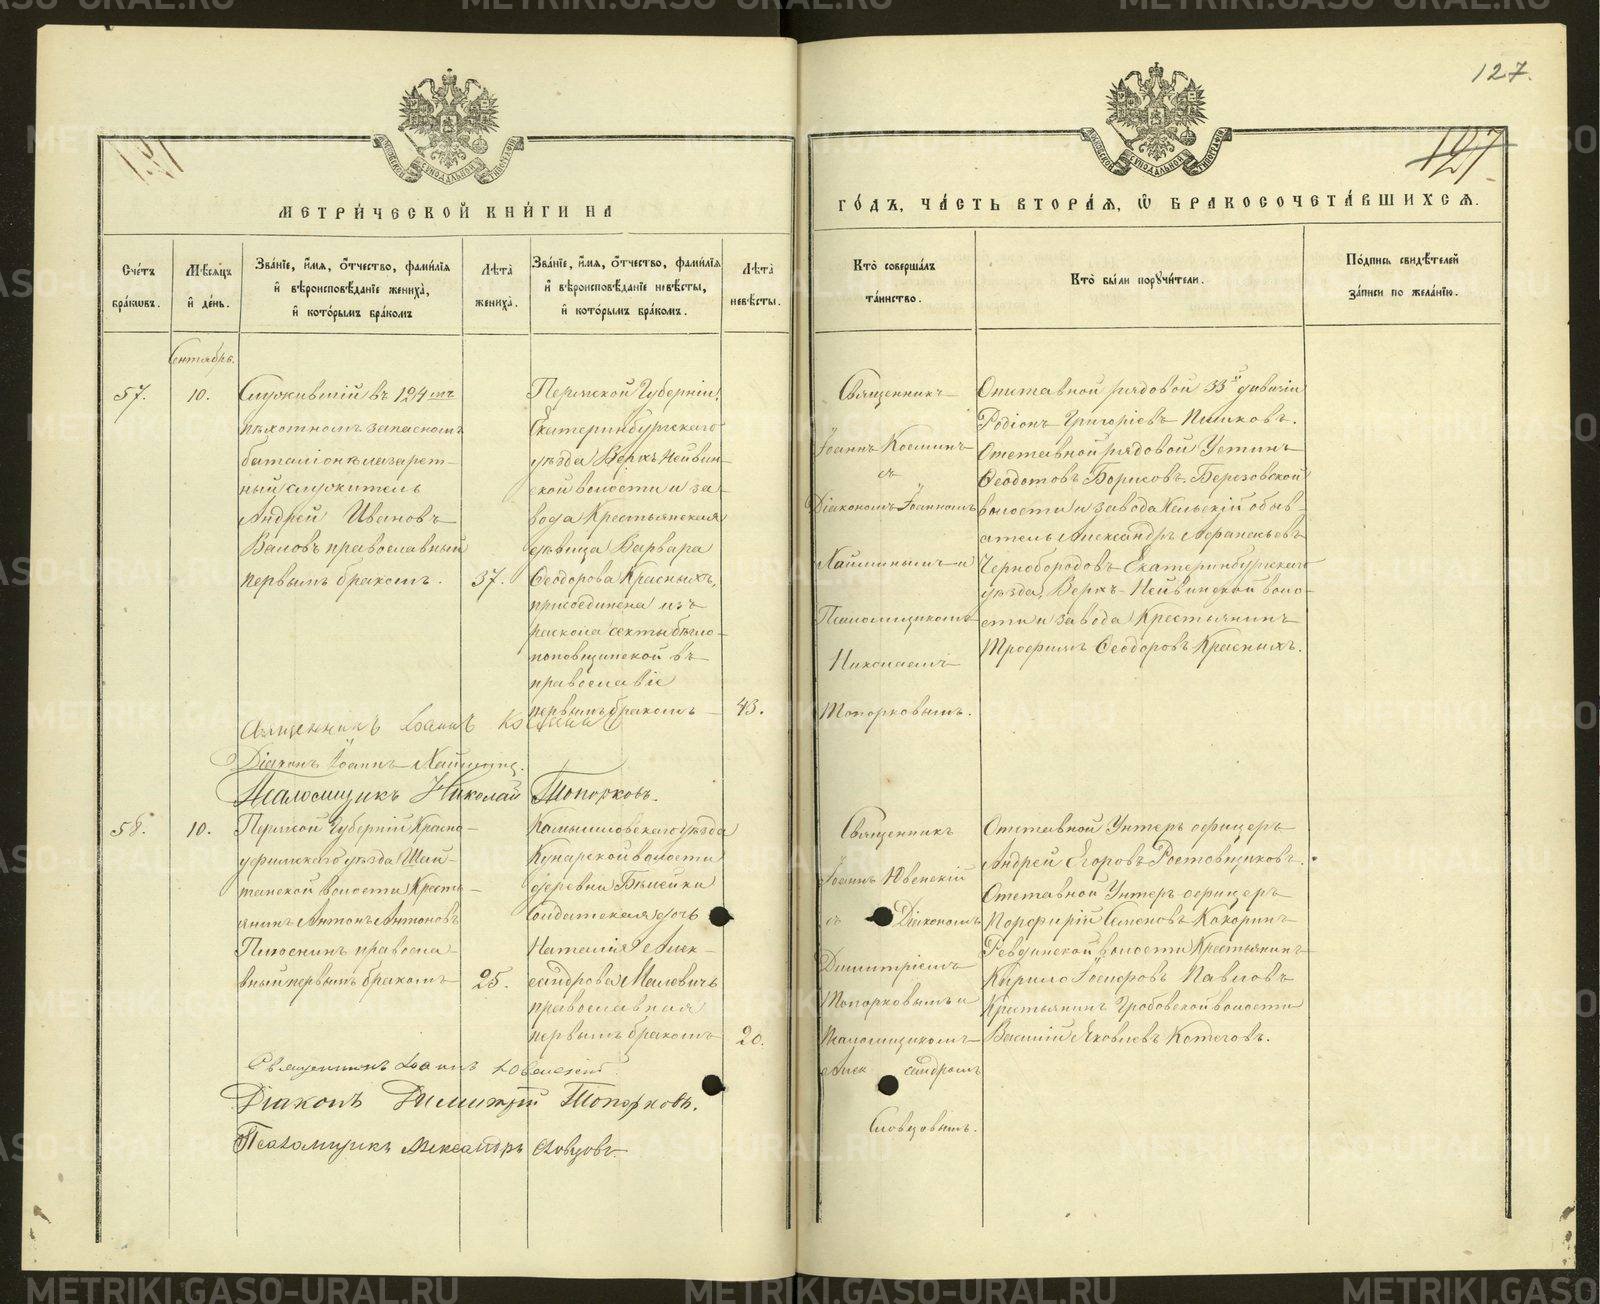 127.
127
МЕТРИ́ЧЕСКОЙ КНИ́ГИ НА
ГО́ДЪ, ЧА́СТЬ ВТОРА́Ѧ, Ѽ БРАКОСОЧЕТА́ВШИХСѦ.
Сче́тъ бра́кѡвъ.
Мѣ́сѧцъ и҆ де́нь.
Зва́нїе, и҆́мѧ, ѻ҆́тчество, фами́лїѧ
и҆ вѣроисповѣ́данїе жениха̀,
и҆ кото́рымъ бра́комъ
Лѣта̀ жениха̀.
Зва́нїе, и҆́мѧ, ѻ҆́тчество, фами́лїѧ
и҆ вѣроисповѣ́данїе невѣ́сты,
и҆ кото́рымъ бра́комъ.
Лѣта̀ невѣ́сты.
Кто̀ соверша́лъ
та́инство.
Кто̀ бы́ли порꙋчи́тели.
По́дпись свидѣ́телей
за́писи по жела́нїю.
Сентябрь.
57.
10.
Служившій въ 124 мъ
пѣхотномъ запасномъ
баталіонѣ лазарет-
ный служитель
Андрей Ивановъ
Валовъ православный
первымъ бракомъ.
37.
Пермской Губерніи,
Екатеринбургскаго
уѣзда Верхъ Нейвин-
ской волости и за-
вода Крестьянская
дѣвица Варвара
Ѳеодорова Красныхъ,
присоединена изъ
раскола секты бѣгло-
поповщинской въ
православіе
первымъ бракомъ
43.
Священникъ
Іоаннъ Косминъ
съ
Діакономъ Іоанномъ
Хаминымъ и
Псаломщикомъ
Николаемъ
Топорковымъ.
Отставной рядовой 33й дивизіи
Родіонъ Григорьевъ Пашковъ.
Отставной рядовой Устинъ
Ѳеодотовъ Борисовъ. Березовской
волости и завода Кельскій обыв-
атель Александръ Афанасьевъ
Чернобородовъ Екатеринбургскаго
уѣзда, Верхъ-Нейвинской воло-
сти и завода Крестьянинъ
Трофимъ Ѳеодоровъ Красныхъ.
Священникъ Іоаннъ Косминъ
Діаконъ Іоаннъ Хаминъ.
Псаломщикъ Николай Топорковъ.
58.
10.
Пермской Губерніи Красно-
уфимскаго уѣзда Шай-
танской волости Кресть-
янинъ Антонъ Антоновъ
Плюснинъ православ-
вный первымъ бракомъ
25.
Камышловскаго уѣзда
Кунарской волости
деревни Бѣлейки
солдатская дочь
Наталія Алек-
сандрова Малевичъ
православная
первымъ бракомъ
20.
Священникъ
Іоаннъ Ювенскій
съ Діакономъ
Димитріемъ
Топорковымъ и
Псаломщикомъ
Александромъ
Словцовымъ.
Отставной Унтеръ офицеръ
Андрей Егоровъ Ростовщиковъ.
Отставной Унтеръ офицеръ
Порфирій Семеновъ Кокоринъ
Ревдинской волости Крестьянинъ
Кирило Іосифовъ Павловъ
Крестьянинъ Гробовской волости
Василій Яковлевъ Котеговъ.
Священникъ Іоаннъ Ювенскій.
Діаконъ Димитрій Топорковъ.
Псаломщикъ Александръ Словцовъ.
METRIKI.GASO-URAL.RU